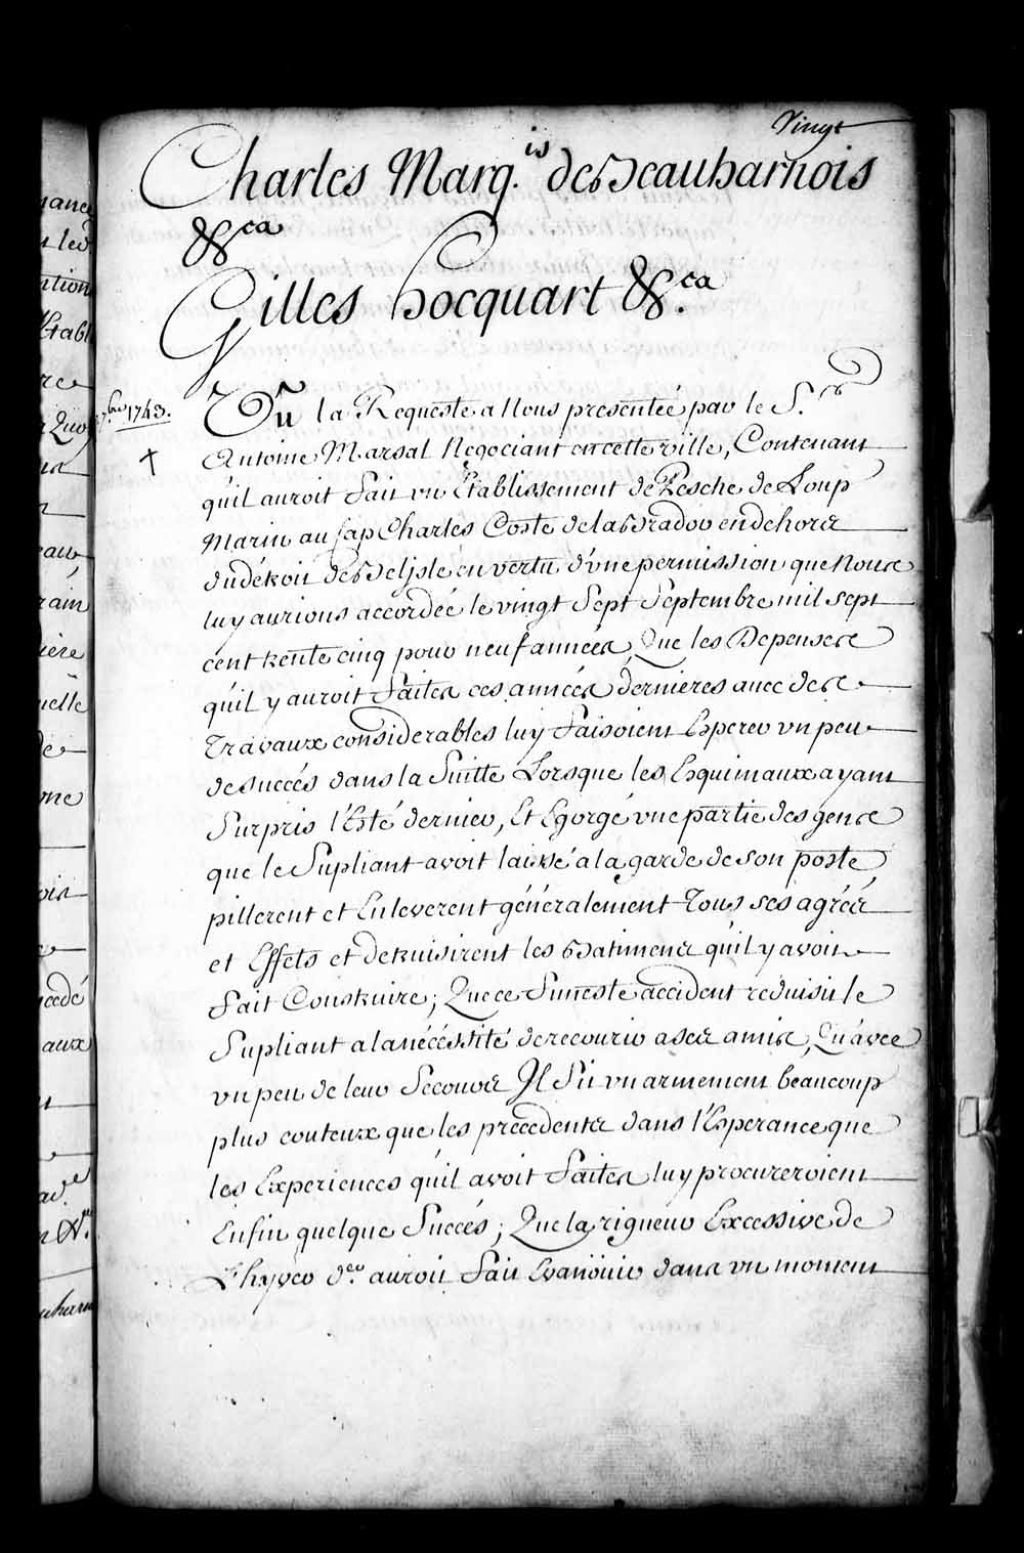 Vingt
Charles Marq.is de Beauharnois
&ca
Gilles hocquart &.ca
7.bre 1743.
Vû la Requeste a Nous presentée par le S.r
Antoine Marsal Negociant en cette ville, Contenant
quil auroit fait un Etablissement de Pesche de Loup
Marin au Cap Charles Coste de la Brador en dehors
du détroit de Belisle en vertu d'vne permission que Nous
luy aurions accordée le vingt Sept Septembre mil sept
cent trente cinq pour neuf années, Que les Depenses
qu'il y auroit faites ces années dernieres avec des
Travaux considerables luy faisoient Esperer vn peu
de succés dans la Suitte Lorsque les Esquimaux ayant
Surpris l'Esté dernier, Et Egorgé vne partie des gens
que le Supliant avoit laissé a la garde de son poste,
pillerent et Enleverent généralement Tous ses agréés
et Effets et detruisirent les Batimens qu'il y avoit
fait Construire; Que ce funeste accident reduisit le
Supliant a la nécéssité de recourir a ses amis, Qu'avec
vn peu de leur Secours Il fit vn armement beaucoup
plus couteux que les précedents dans l'Esperance que
les Experiences qu'il avoit faites luy procureroient
Enfin quelque Succés; Que la rigueur Excessive de
L'hyver d.er auroit fait Evanöuir dans vn moment